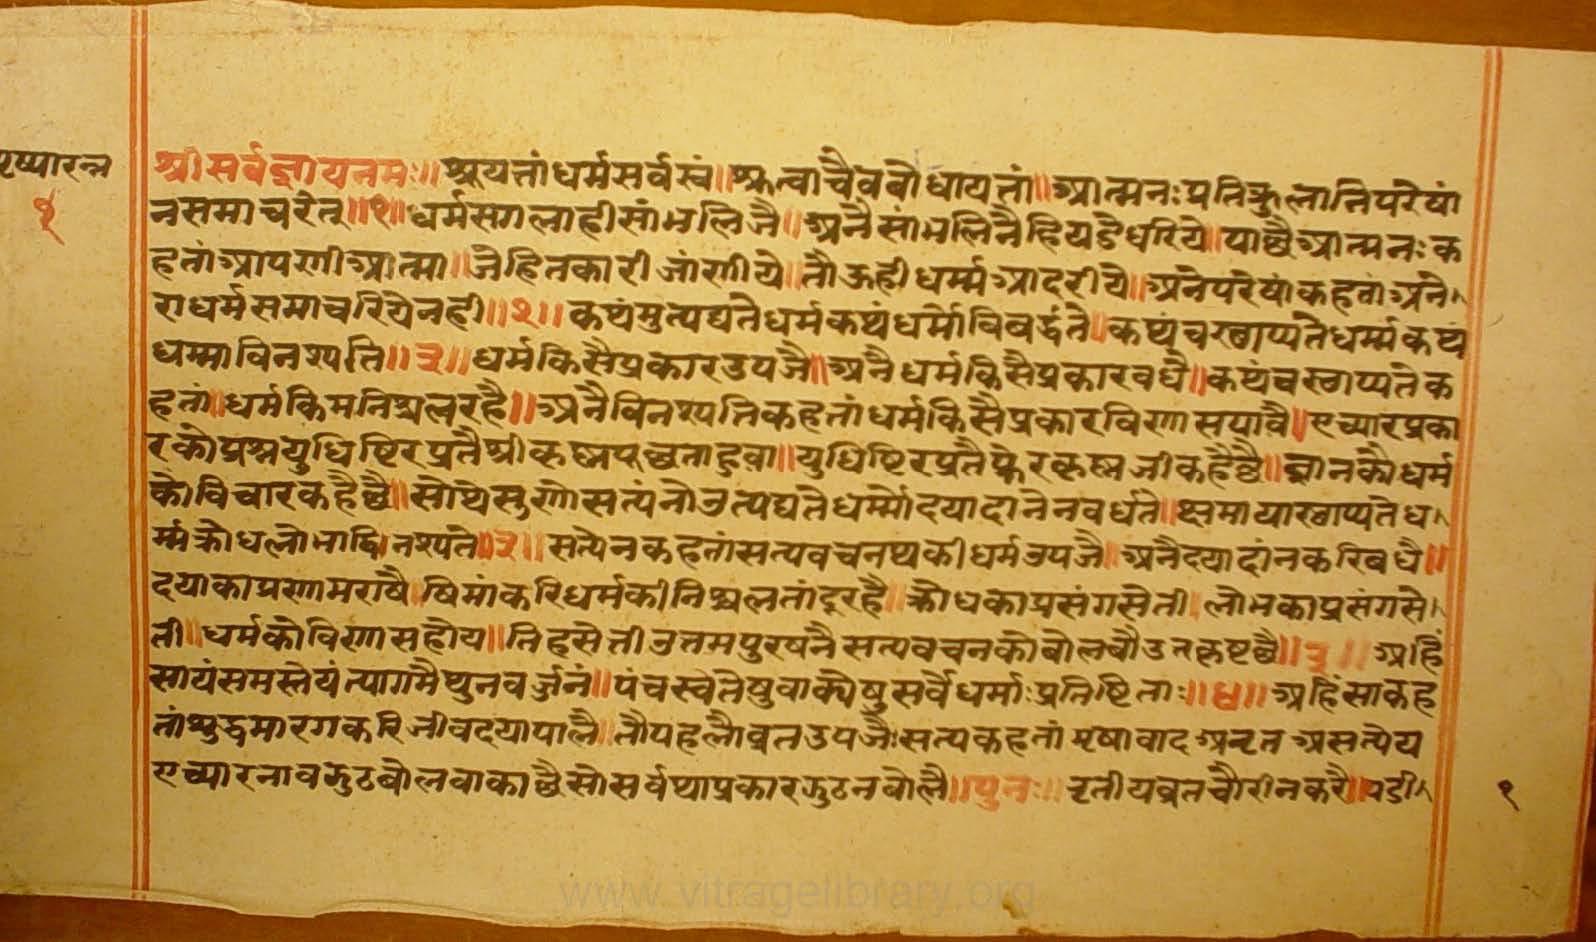 श्रीसर्वज्ञायनमः॥श्रूयतांधर्मसर्वस्वं॥श्रुत्वाचैवबोधायतां॥आत्मनःप्रतिकुलानिपरेषां
नसमाचरेत्॥१॥धर्मसगलाहीसांभलिजै॥अनैसांभलिनैहियडैधरिये॥पाछैआत्मनःक
हतांआपरणीआत्मा॥जैहितकारीजांणीये॥तौऊहीधर्म्मआदरीये॥अनेपरेषांकहतांअने
राधर्मसमाचरियेनही॥२॥कथंमुत्पद्यतेधर्मकथंधर्मोविवर्द्धते॥कथंचस्छाप्यतेधर्म्मकथं
धर्म्माविनश्यति॥३॥धर्मकिसैप्रकारउपजै॥अनैधर्मकिसैप्रकारवधै॥कथंचस्छाप्यतेक
हतां॥धर्मकिमनिश्चलरहै॥अनैविनश्यतिकहतांधर्मकिसैप्रकारविणासपावै॥एच्यारप्रका
रकोप्रश्नयुधिष्टिरप्रतैश्रीकृष्णपूच्छताहुवा॥युधिष्टिरप्रतैफेरकृष्णजीकहैछै॥ज्ञानकौधर्म
कोविचारकहैछै॥सोथेसुणोसत्यंनोउत्पद्यतेधर्म्मोदयादानेनवर्धते॥क्षमायास्छाप्यतेध
र्म्मक्रोधलोभाद्विनश्यते॥३॥सत्येनकहतांसत्यवचनथकीधर्मउपजै॥अनैदयादांनकरिवधै॥
दयाकाप्रणामराषै॥षिमांकरिधर्मकीनिश्चलतांदूरहै॥क्रोधकाप्रसंगसेती॥लोभकाप्रसंगसे
ती॥धर्मकोविणासहोय॥तिहसेतीउत्तमपुरषनैसत्यवचनकोबोलबौउतकृष्टछै॥३॥अहिं
सायंसमस्तेयंत्यागमैथुनवर्ज्जनं॥पंचस्वेतेषुवाक्येषुसर्वेधर्माःप्रतिष्टिताः॥४॥अहिंसाकह
तांशुद्धमारगकरिजीवदयापालै॥तौपहलौव्रतउपजै॥सत्यकहतांमृषावादअनृतअसत्येय
एच्यारनावझुठबोलवाकाछैसोसर्वथाप्रकारझुठनबोलै॥पुनः॥तृतीयव्रतचौरीनकरै॥पडी
१
१
www.vitragelibrary.org